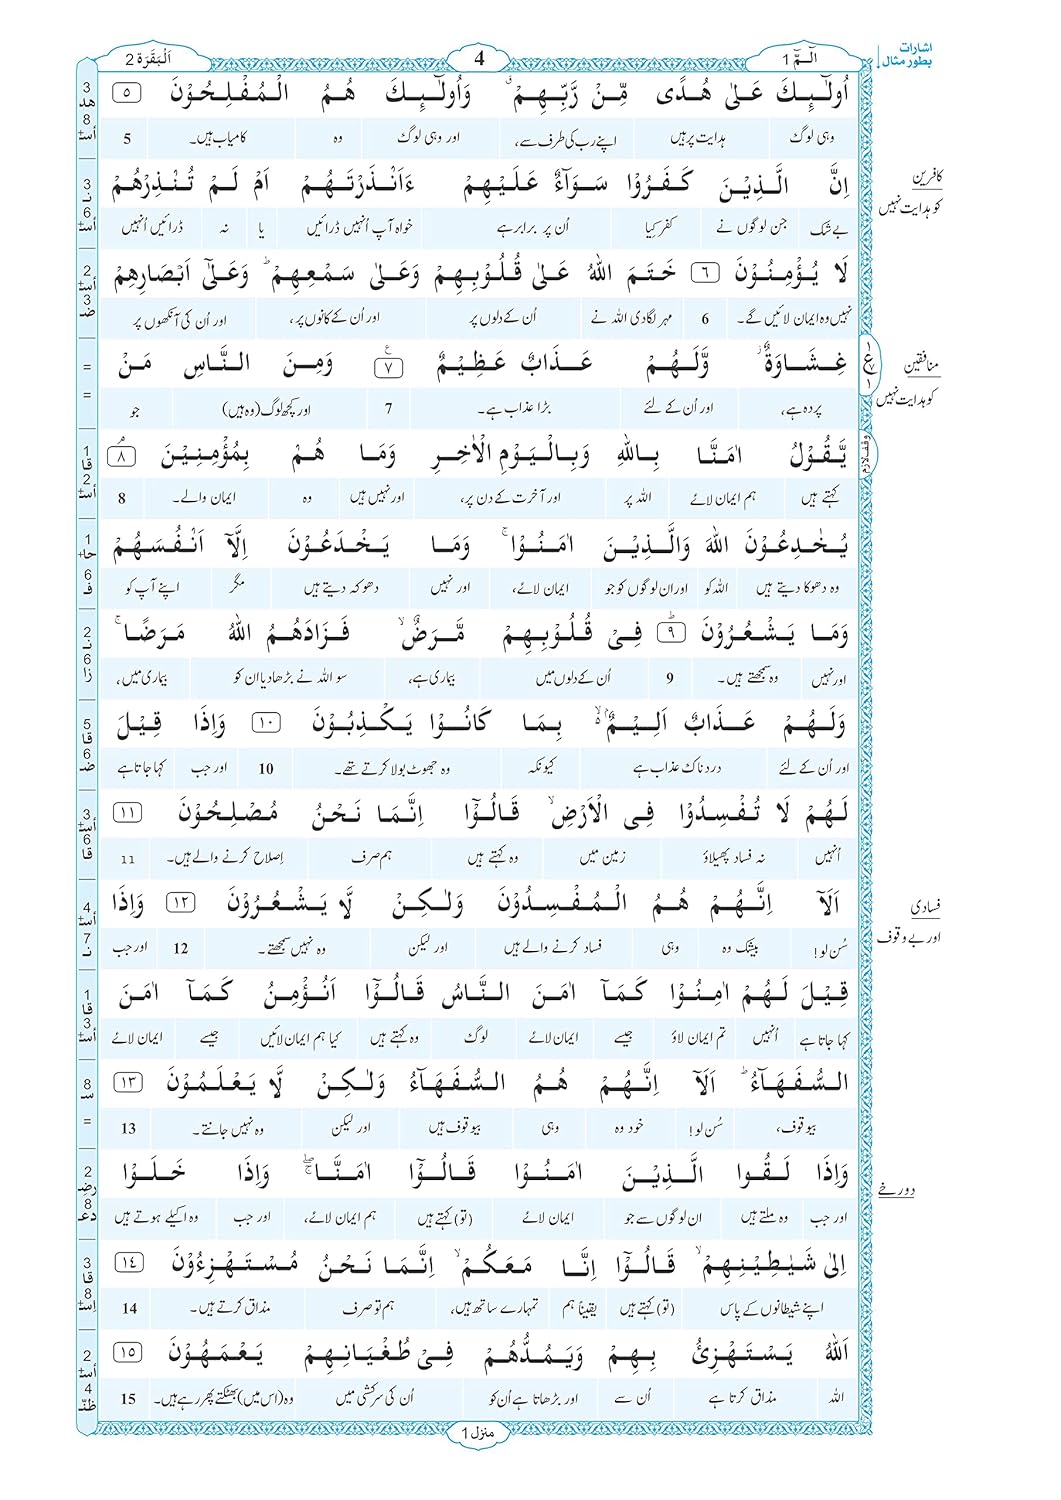 الٓمّٓ 1
4
اَلْبَقَرَة 2
اشارات
بطور مثال
اُولٰٓئِكَ عَلٰى هُدًى مِّنْ رَّبِّهِمْ ۗ وَاُولٰٓئِكَ هُمُ الْمُفْلِحُوْنَ ٥
وہی لوگ ہدایت پر ہیں اپنے رب کی طرف سے، اور وہی لوگ وہ کامیاب ہیں۔ 5
اِنَّ الَّذِيْنَ كَفَرُوْا سَوَآءٌ عَلَيْهِمْ ءَاَنْذَرْتَهُمْ اَمْ لَمْ تُنْذِرْهُمْ
بے شک جن لوگوں نے کفر کیا اُن پر برابر ہے خواہ آپ اُنہیں ڈرائیں یا نہ ڈرائیں اُنہیں
کافرین
کو ہدایت نہیں
لَا يُؤْمِنُوْنَ ٦ خَتَمَ اللّٰهُ عَلٰى قُلُوْبِهِمْ وَعَلٰى سَمْعِهِمْ ؕ وَعَلٰٓى اَبْصَارِهِمْ
نہیں وہ ایمان لائیں گے۔ 6 مہر لگادی اللہ نے اُن کے دلوں پر اور اُن کے کانوں پر، اور اُن کی آنکھوں پر
غِشَاوَةٌ ؗ وَّلَهُمْ عَذَابٌ عَظِيْمٌ ٧ وَمِنَ النَّاسِ مَنْ
پردہ ہے، اور اُن کے لئے بڑا عذاب ہے۔ 7 اور کچھ لوگ (وہ ہیں) جو
منافقین
کو ہدایت نہیں
يَّقُوْلُ اٰمَنَّا بِاللّٰهِ وَبِالْيَوْمِ الْاٰخِرِ وَمَا هُمْ بِمُؤْمِنِيْنَ ٨
وقف لازم
کہتے ہیں ہم ایمان لائے اللہ پر اور آخرت کے دن پر، اور نہیں ہیں وہ ایمان والے۔ 8
يُخٰدِعُوْنَ اللّٰهَ وَالَّذِيْنَ اٰمَنُوْا ۚ وَمَا يَخْدَعُوْنَ اِلَّآ اَنْفُسَهُمْ
وہ دھوکا دیتے ہیں اللہ کو اور ان لوگوں کو جو ایمان لائے، اور نہیں دھوکہ دیتے ہیں مگر اپنے آپ کو
وَمَا يَشْعُرُوْنَ ٩ فِيْ قُلُوْبِهِمْ مَّرَضٌ ۙ فَزَادَهُمُ اللّٰهُ مَرَضًا ۚ
اور نہیں وہ سمجھتے ہیں۔ 9 اُن کے دلوں میں بیماری ہے، سو اللہ نے بڑھا دیا ان کو بیماری میں،
وَلَهُمْ عَذَابٌ اَلِيْمٌ ۢ ۙ بِمَا كَانُوْا يَكْذِبُوْنَ ١٠ وَاِذَا قِيْلَ
اور اُن کے لئے دردناک عذاب ہے کیونکہ وہ جھوٹ بولا کرتے تھے۔ 10 اور جب کہا جاتا ہے
لَهُمْ لَا تُفْسِدُوْا فِي الْاَرْضِ ۙ قَالُوْٓا اِنَّمَا نَحْنُ مُصْلِحُوْنَ ١١
اُنہیں نہ فساد پھیلاؤ زمین میں وہ کہتے ہیں ہم صرف اِصلاح کرنے والے ہیں۔ 11
اَلَآ اِنَّهُمْ هُمُ الْمُفْسِدُوْنَ وَلٰكِنْ لَّا يَشْعُرُوْنَ ١٢ وَاِذَا
سُن لو! بیشک وہ وہی فساد کرنے والے ہیں اور لیکن وہ نہیں سمجھتے۔ 12 اور جب
فسادی
اور بے وقوف
قِيْلَ لَهُمْ اٰمِنُوْا كَمَآ اٰمَنَ النَّاسُ قَالُوْٓا اَنُؤْمِنُ كَمَآ اٰمَنَ
کہا جاتا ہے اُنہیں تم ایمان لاؤ جیسے ایمان لائے لوگ وہ کہتے ہیں کیا ہم ایمان لائیں جیسے ایمان لائے
السُّفَهَآءُ ؕ اَلَآ اِنَّهُمْ هُمُ السُّفَهَآءُ وَلٰكِنْ لَّا يَعْلَمُوْنَ ١٣
بیوقوف، سُن لو! خود وہ وہی بیوقوف ہیں اور لیکن وہ نہیں جانتے۔ 13
وَاِذَا لَقُوا الَّذِيْنَ اٰمَنُوْا قَالُوْٓا اٰمَنَّا ۖۚ وَاِذَا خَلَوْا
اور جب وہ ملتے ہیں ان لوگوں سے جو ایمان لائے (تو) کہتے ہیں ہم ایمان لائے، اور جب وہ اکیلے ہوتے ہیں
دو رخے
اِلٰى شَيٰطِيْنِهِمْ ۙ قَالُوْٓا اِنَّا مَعَكُمْ ۙ اِنَّمَا نَحْنُ مُسْتَهْزِءُوْنَ ١٤
اپنے شیطانوں کے پاس (تو) کہتے ہیں یقیناً ہم تمہارے ساتھ ہیں، ہم تو صرف مذاق کرتے ہیں۔ 14
اَللّٰهُ يَسْتَهْزِئُ بِهِمْ وَيَمُدُّهُمْ فِيْ طُغْيَانِهِمْ يَعْمَهُوْنَ ١٥
اللہ مذاق کرتا ہے اُن سے اور بڑھاتا ہے اُن کو اُن کی سرکشی میں وہ (اس میں) بھٹکتے پھر رہے ہیں۔ 15
منزل 1